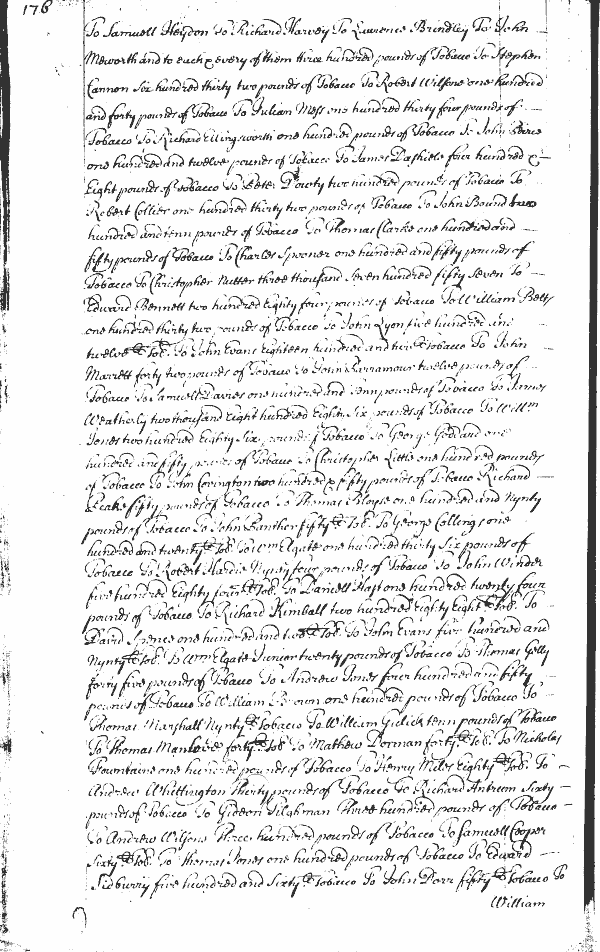 176
To Samuell Heydon To Richard Harvey To Lawrence Brindley To John
Meworth and to each & every of them three hundred pounds of Tobaco To Stephen
Cannon Six hundred thirty two pounds of Tobaco To Robert Wilsone one hundred
and forty pounds of Tobaco To Julian Mess one hundred thirty four pounds of
Tobacco To Richard Ellingsworth one hundred pounds of Tobacco To John
one hundred and twelve pounds of Tobacco To James Dashiele four hundred &
Eight pounds of tobacco To Peter Dowty two hundred pounds of Tobacco To
Robert Collier one hundred thirty two pounds of Tobacco To John Bound two
hundred and tenn pounds of Tobacco To Thomas Clarke one hundred and
fifty pounds of Tobacco To Charles Spooner one hundred and fifty pounds of
Tobacco To Christopher Nutter three thousand Seven hundred fifty Seven To
Edward Bennett two hundred Eighty four pounds of Tobacco To William Betts
one hundred thirty two pounds of Tobacco To John Lyon five hundred and
twelve Tob: To John Evans Eighteen hundred and two Tobacco To John
Marrett forty two pounds of Tobacco To John Parramour twelve pounds of
Tobacco To Samuell Davies one hundred and tenn pounds of Tobacco To James
Weatherly two thousand Eight hundred Eighty Six pounds of Tobacco To Willm
Jones two hundred Eighty Six pounds of Tobacco To George Goddard one
hundred and fifty pounds of Tobacco To Christopher Little one hundred pounds
of Tobacco To John Covington two hundred & fifty pounds of Tobacco Richard
Peake fifty pounds of Tobacco To Thomas Bloyse one hundred and Nynty
pounds of Tobacco To John Panther fifty Tob: To George Collings one
hundred and twenty Tob: To Wm Elgate one hundred thirty Six pounds of
Tobacco To Robert Hardie Nynty four pounds of Tobacco To John Winder
five hundred Eighty four Tob: To Daniell Hast one hundred twenty four
pounds of Tobacco To Richard Kimball two hundred Eighty Eight Tob: To
David Spence one hundred and two Tob: To John Evans five hundred and
Nynty Tob: To Wm Elgate Junior twenty pounds of Tobacco To Thomas Gelly
forty five pounds of Tobacco To Andrew Jones four hundred and fifty
pounds of Tobaco To William Brown one hundred pounds of Tobacco To
Thomas Marshall Nynty Tobacco To William Gulick tenn pounds of Tobaco
To Thomas Manlove forty Tob To Mathew Dorman forty Tob: To Nicholas
Fountaine one hundred pounds of Tobacco To Henry Miles Eighty Tob: To
Andrew Whittington Thirty pounds of Tobacco To Richard Antrum Sixty
pounds of Tobacco To Gideon Tilghman Three hundred pounds of Tobaco
To Andrew Wilson Three hundred pounds of Tobacco To Samuell Cooper
Sixty Tob: To Thomas Jones one hundred pounds of Tobacco To Edward
Sidburry five hundred and Sixty Tobacco To John Dorr fifty Tobacco To
William